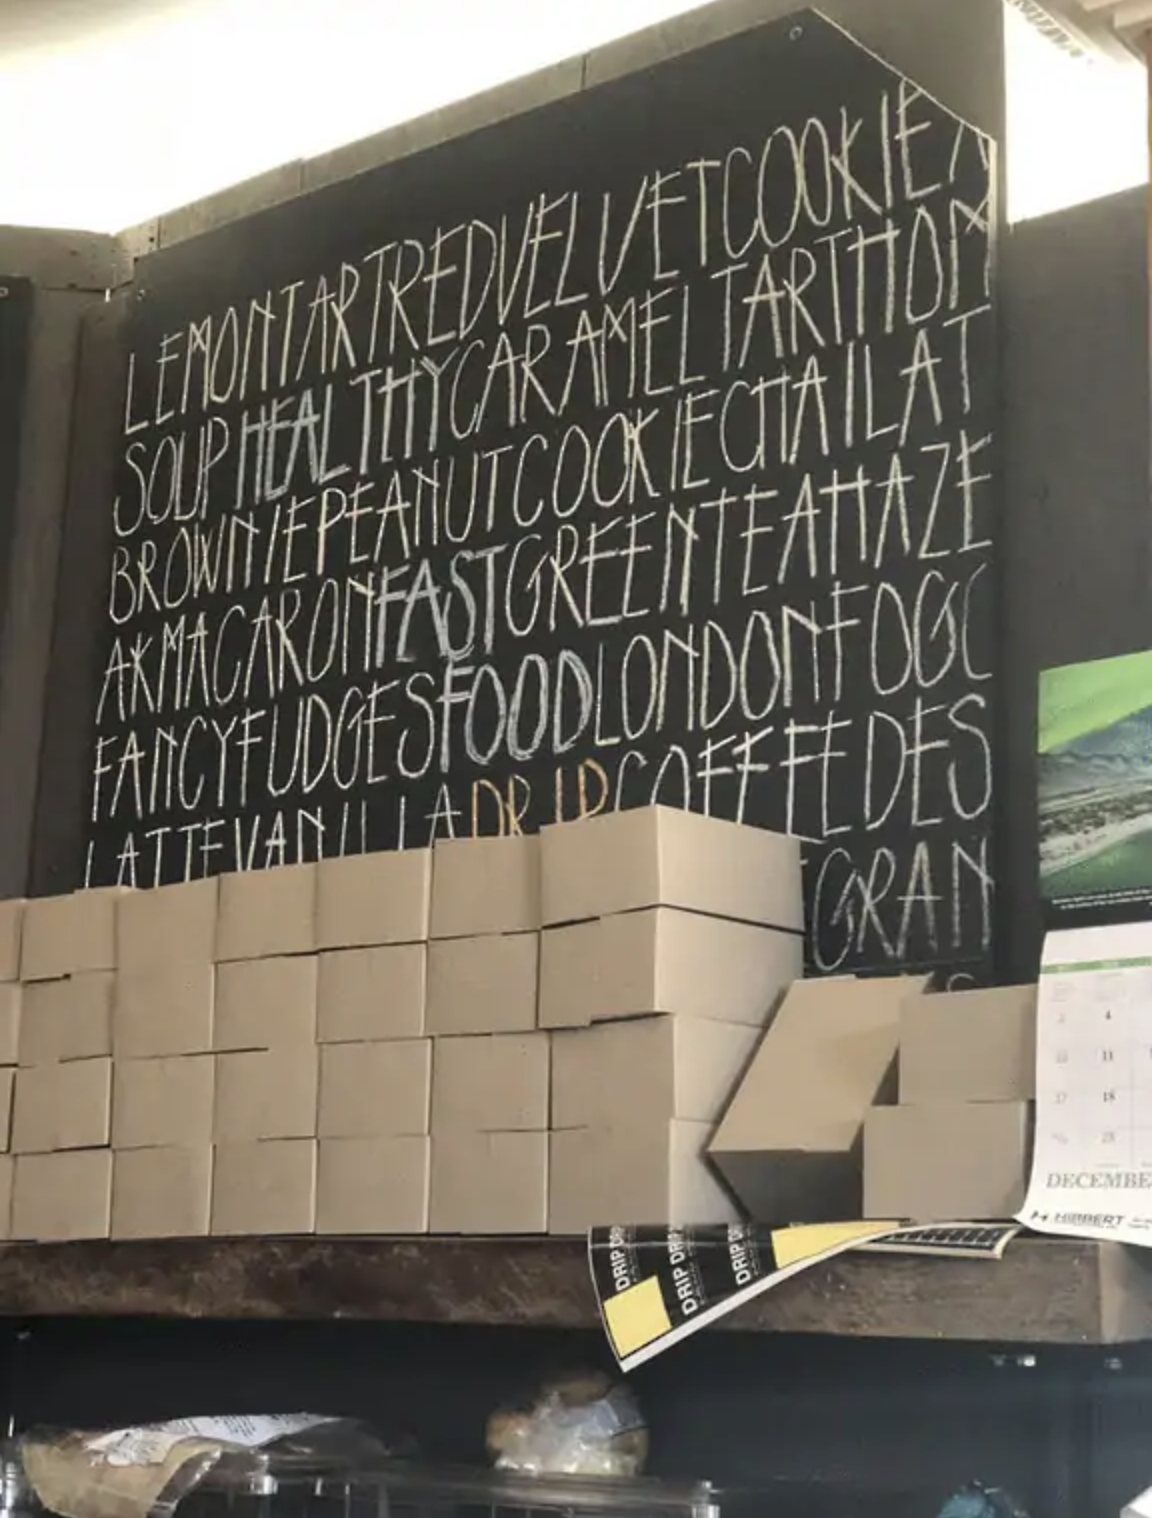 LEMONTARTREDVELVETCOOKIE
SOUPHEALTHYCARAMELTARTHOM
BROWNIEPEANUTCOOKIECHAILAT
AKMACARONFASTGREENTEAHAZE
FANCYFUDGESFOODLONDONFOGC
LATTEVANILLADRIPCOFFEEDES
GRAN
DRIP
DRIP
DRIP
4
11
18
DECEMBE
HIBBERT